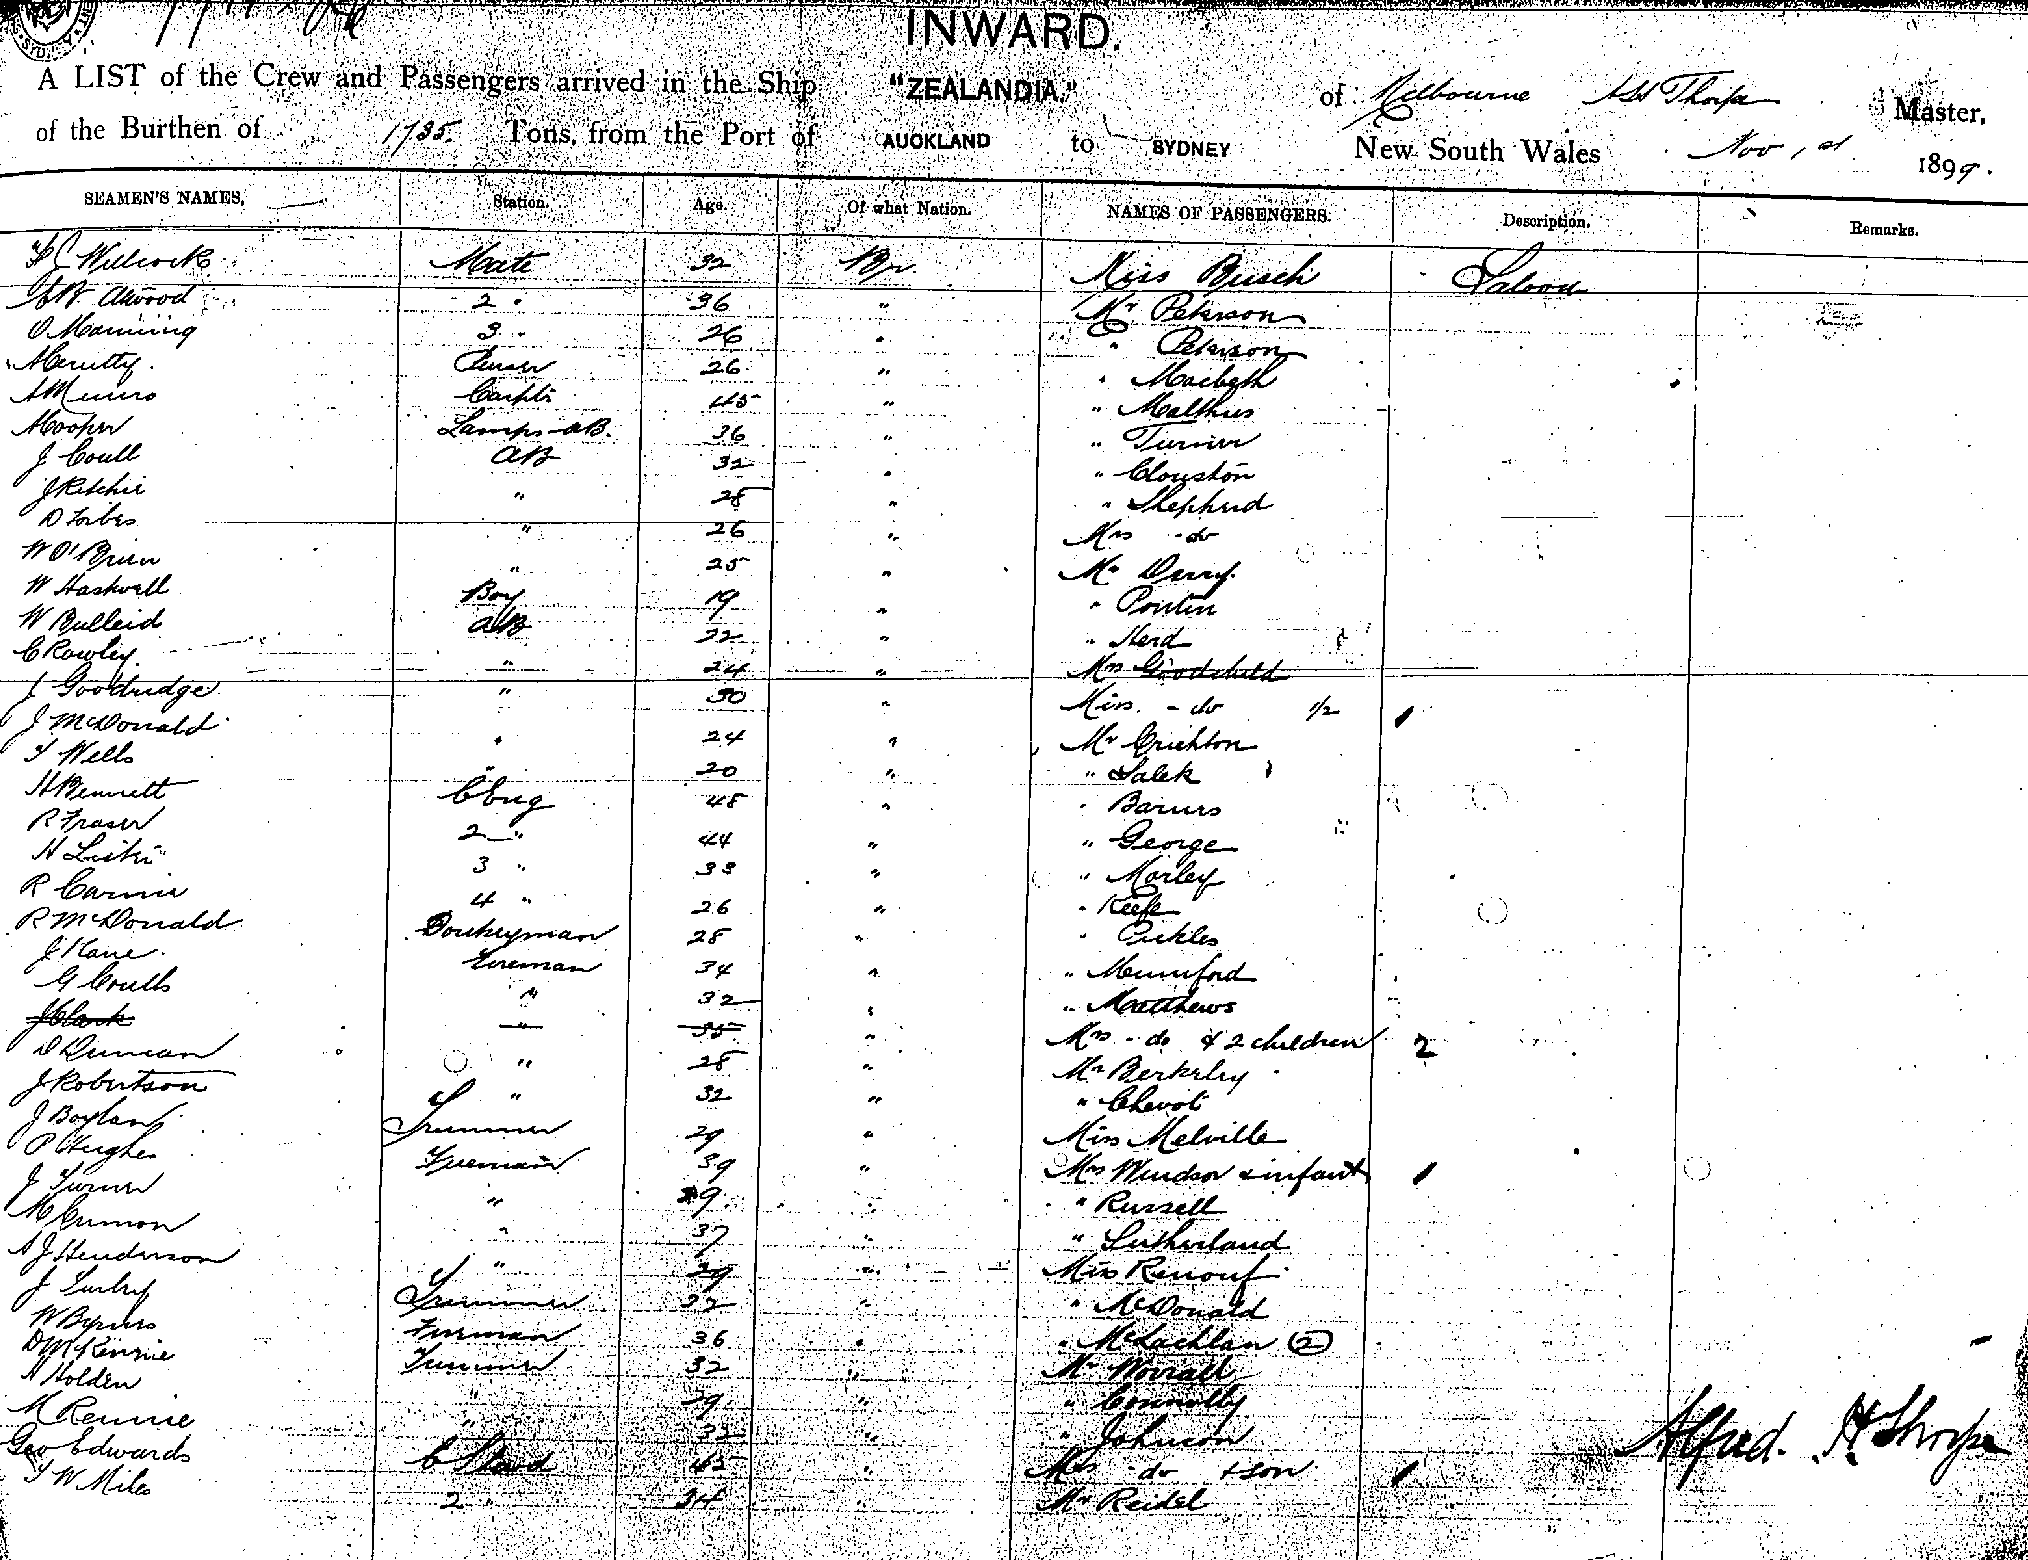 INWARD.
A LIST of the Crew and Passengers arrived in the Ship "ZEALANDIA." of Melbourne Thorpe Master,
of the Burthen of 1735. Tons, from the Port of AUCKLAND to SYDNEY New South Wales Nov 1st 1899.
SEAMEN'S NAMES, Station. Age. Of what Nation. NAMES OF PASSENGERS. Description. Remarks.
Willcock Mate 32 Br. Miss Busch Saloon
Atwood 2 " 36 " Mr Peterson
O Manning 3 " 26 " " Peterson
Purser 26 " " Macbeth
A Munro Carptr 45 " " Malthus
M Cooper Lamps - AB. 36 " " Turner
J Coull AB 32 " " Clouston
J Ritchie " 28 " " Shepherd
D Forbes " 26 " Mrs - do
W O'Brien " 25 " Mr Derry
W Haskvell Boy 19 " " Pontin
W Bulleid AB 22 " " Herd
C Rowley " 24 " Mrs Goodchild
J Goodridge " 30 " Miss - do 1/2 1
J McDonald " 24 " Mr Crichton
F Wells " 20 " " Salek
H Bennett C Eng 48 " " Barnes
R Fraser 2 " 44 " " George
H Liske 3 " 33 " " Morley
R Carnie 4 " 26 " " Keefe
R McDonald Donkeyman 28 " " Pickles
J Kane Fireman 34 " " Mumford
G Coutts " 32 " " Matthews
J Clark " 35 " Mrs - do & 2 children 2
D Duncan " 28 " Mr Berkeley
J Robertson " 32 " " Chevot
J Boylan Trimmer 29 " Miss Melville
P Hughes Fireman 39 " Mrs Windsor & infant 1
J Turner " 29 " " Russell
" 37 " " Sutherland
A J Henderson " 29 " Miss Renouf
J Trimmer 32 " " McDonald
W Byrnes Fireman 36 " " McLachlan (2)
D McKenzie Trimmer 32 " Mr Worrall
H Holden " 29 " " Connolly
M Rennie " 32 " " Johnson
Geo Edwards C Stewd 45 " Mrs - do & son 1
F W Miles 2 " 34 " Mr Reidel
Alfred. H Thorpe